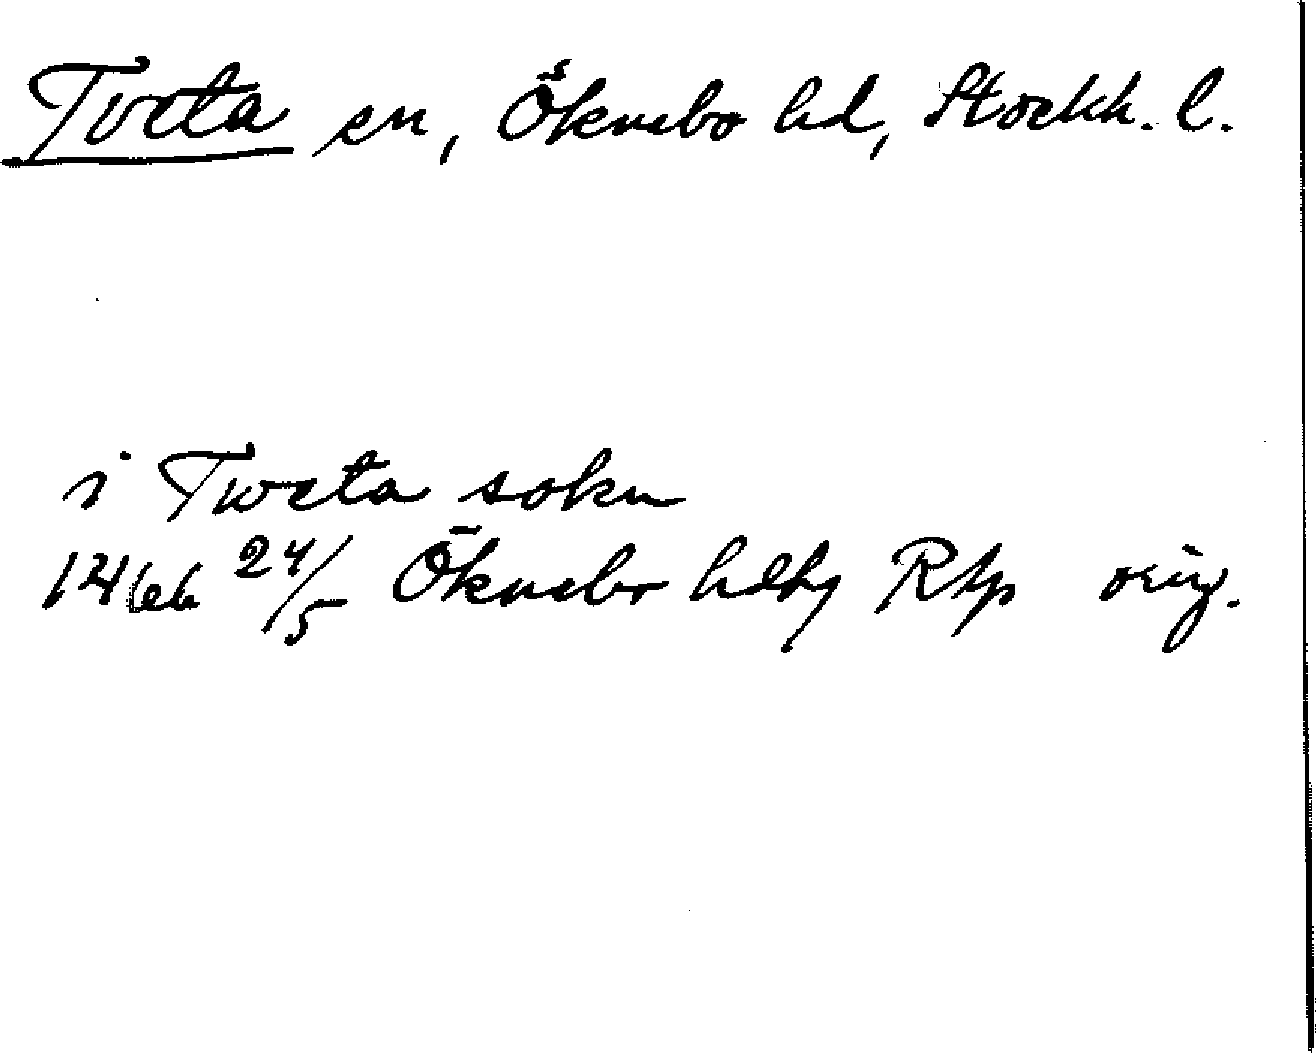 Tveta sn, Öknebo hd, Stockh. l.
i Tweta sokn
1466 24/5 Öknebo hdbg Rap orig.